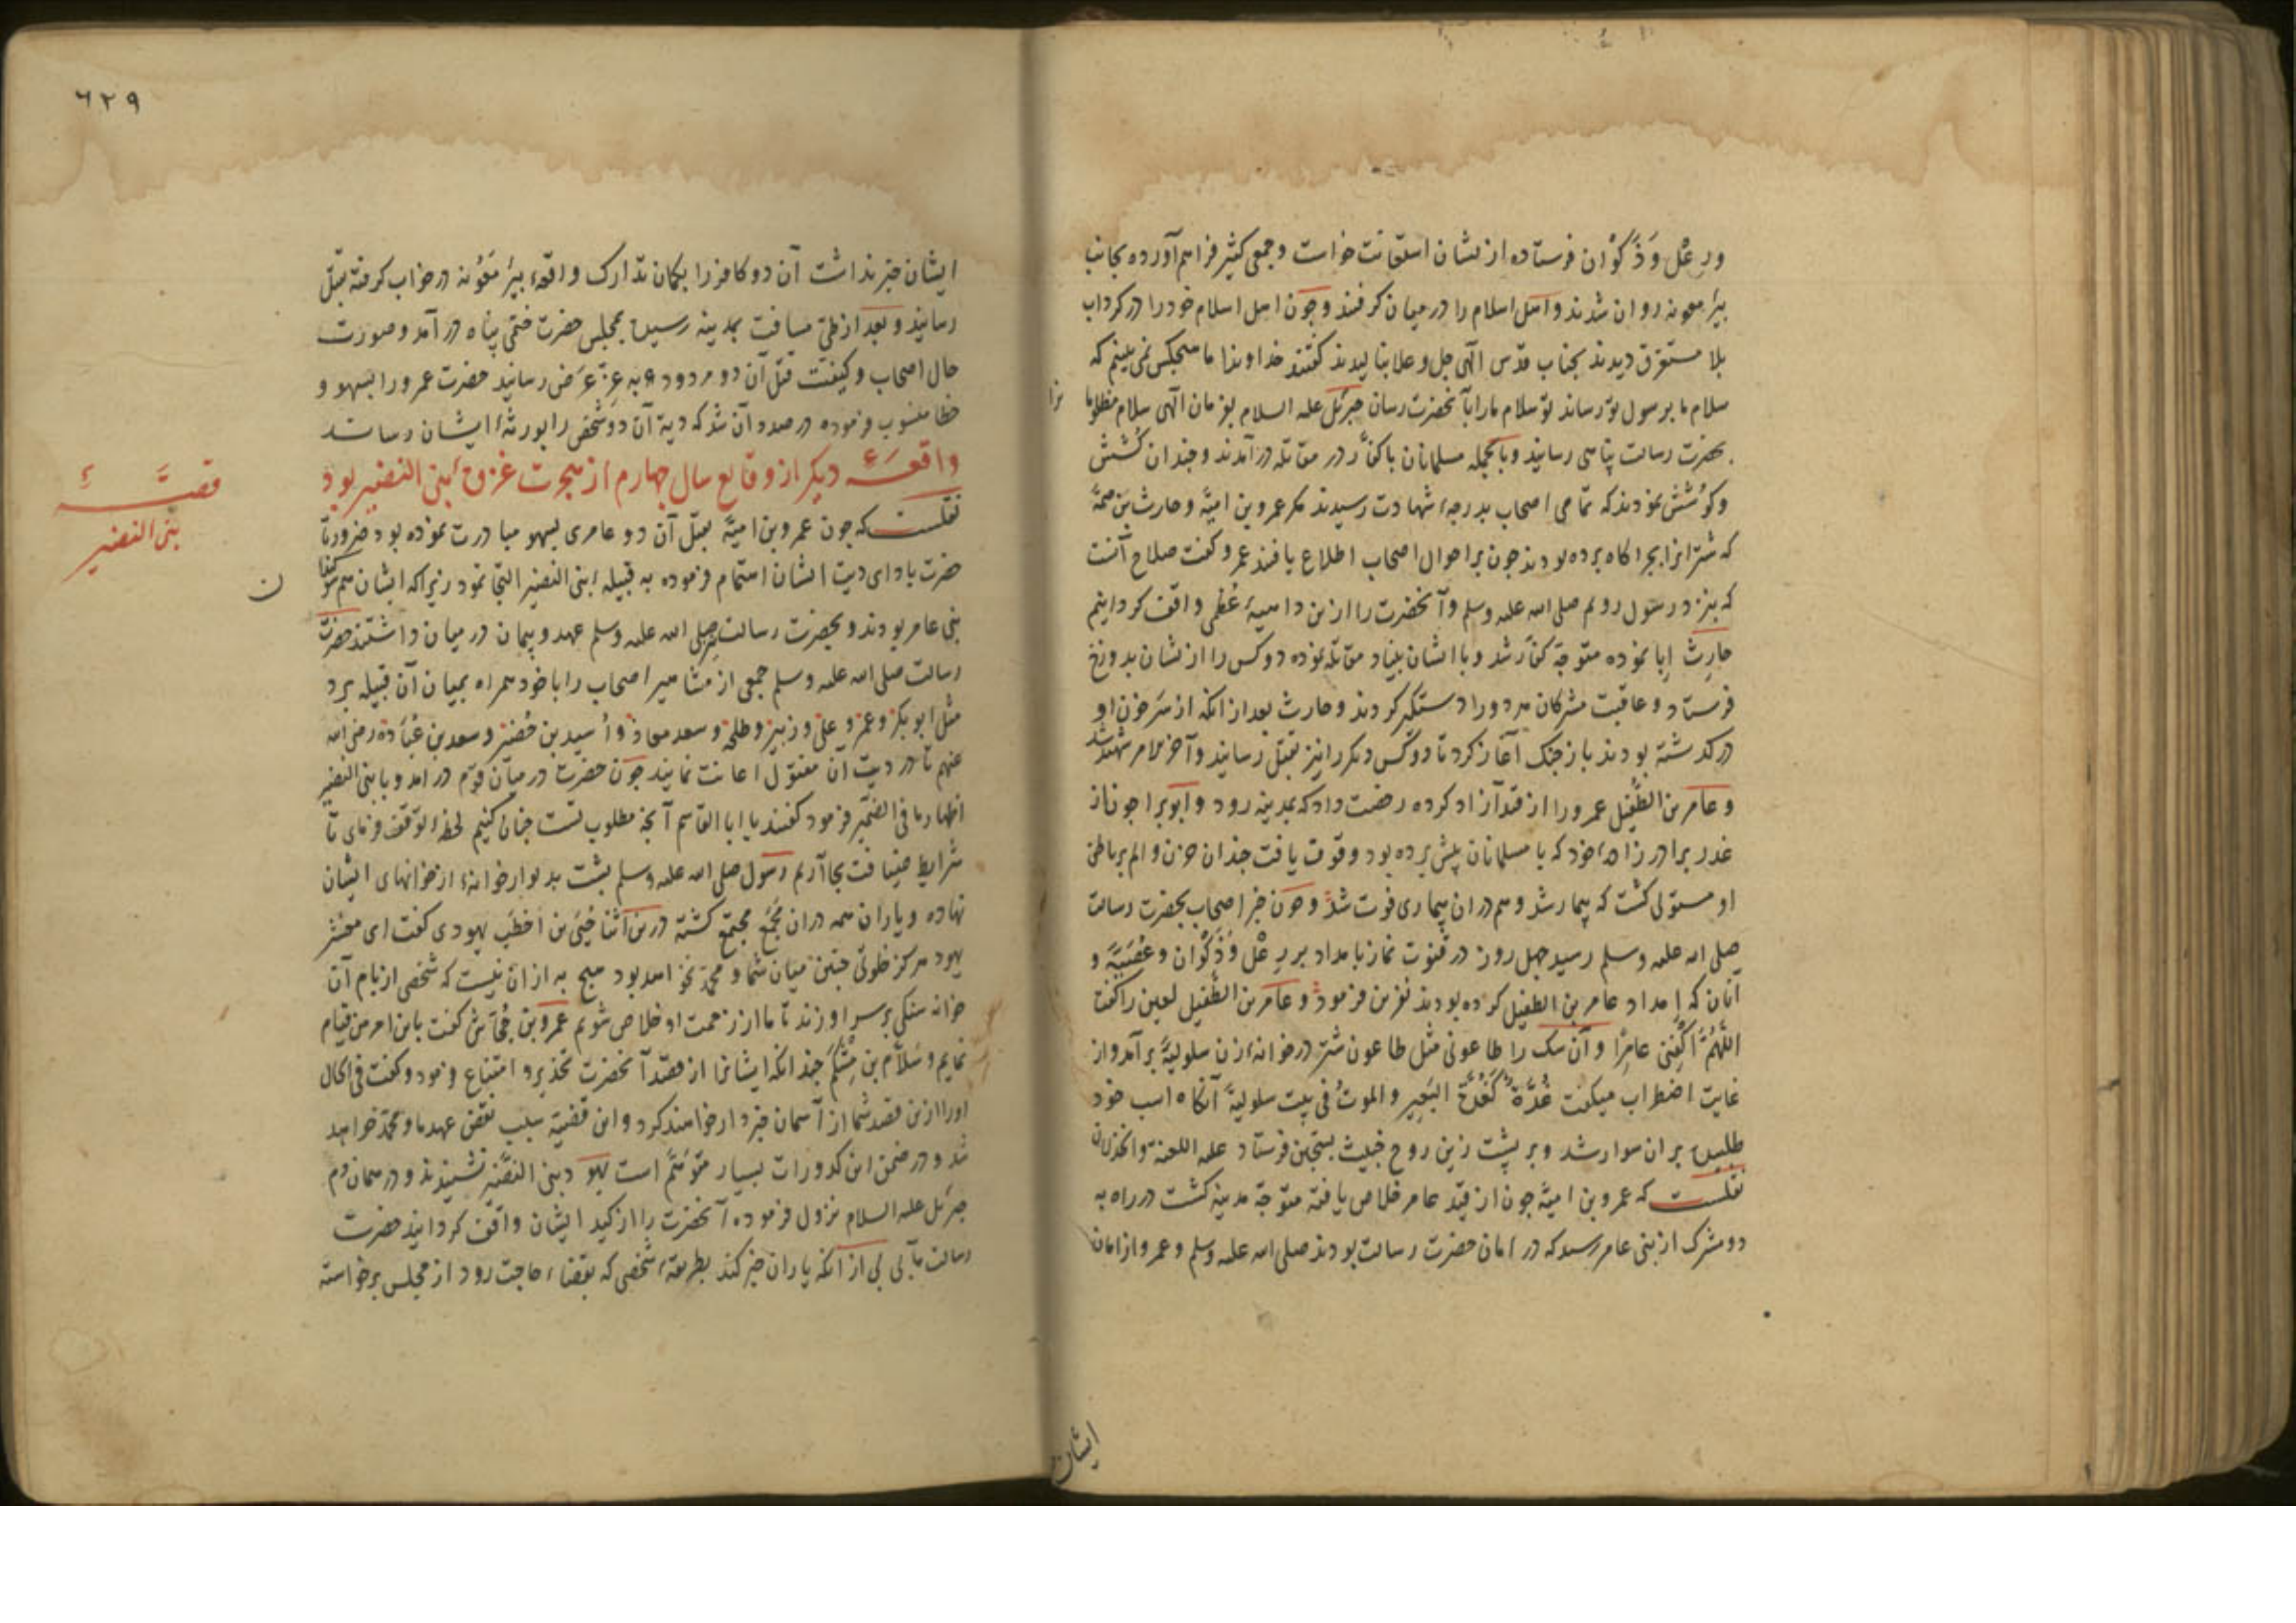 ورعل وَذَکْوان فرستاده از نشان استعانت خواست و جمعی کثیر فراهم آورده بجانب
بیر معونه روان شدند و اهل اسلام را در میان کرفتند و چون اهل اسلام خود را در کرداب
بلا مستغرق دیدند بجناب قدس الهی جل و علا بنالیدند کفتند خداوندا ما هیچکس نمی بینیم که
سلام ما برسول تو رساند تو سلام ما را بآنحضرت رسان جبرئل علیه السلام بفرمان الهی سلام مظلوما
نرا
بحضرت رسالت پناهی رسانید و بالجمله مسلمانان با کفّار در مقاتله در آمدند و چندان کُشش
و کوشش نمودند که تمامی اصحاب بدرجهٔ شهادت رسیدند مکر عمرو بن امیة و حارث بن صمة
که شترانرا بچراکاه برده بودند چون بر احوال اصحاب اطلاع یافتند عمرو کفت صلاح آنست
که بنزد رسول رویم صلی الله علیه وسلم و آنحضرت را ازین داهیهٔ عُظمی واقف کردانیم
حارث اِبا نموده متوجه کفّار شد و با ایشان بنیاد مقاتله نموده دو کس را از نشان بدوزخ
فرستاد و عاقبت مشرکان هر دو را دستکیر کردند و حارث بعد از آنکه از سَر خون او
در کذشته بودند باز جنک آغاز کرد تا دو کس دیکر را نیز بقتل رسانید و آخر الامر شهید شد
و عامر بن الطُّفیل عمرو را از قید آزاد کرده رخصت داد که بمدینه رود و ابو برا چون از
غدر برادر زادهٔ خود که با مسلمانان پیش برده بود وقوف یافت چندان حزن و الم بر باطن
او مستولی کشت که بیمار شد و هم در ان بیماری فوت شد و چون خبر اصحاب بحضرت رسالت
صلی الله علیه وسلم رسید چهل روز در قنوت نماز بامداد بر رِعْل وَذَکْوان و عُصَیَّه و
آنان که اِمداد عامر بن الطفیل کرده بودند نفرین فرمود و عامر بن الطُّفیل لعین را کفت
اللّٰهُمَّ اکْفِنی عامِرًا و آن سک را طاعونی مثل طاعون شتر در خانهٔ زن سلولیةً بر آمد و از
غایت اضطراب میکفت غُدَّةٌ کَغُدَّةِ البَعِیرِ و الموتُ فی بیت سلولیةً آنکاه اسب خود
طلبیده بر ان سوار شد و بر پشت زین روح خبیث بسجّین فرستاد علیه اللعنة و الخذلان
نقلست که عمرو بن امیة چون از قید عامر خلاص یافته متوجه مدینه کشت در راه به
دو مشرک از بنی عامر رسید که در امان حضرت رسالت بودند صلی الله علیه وسلم و عمرو از امان
ایشان
٦٢٩
ایشان خبر نداشت آن دو کافر را بکمان تدارک واقعهٔ بیر معونه در خواب کرفته بقتل
رسانید و بعد از طیّ مسافت بمدینه رسیده بمجلس حضرت ختمی پناه در آمد و صورت
حال اصحاب و کیفیت قتل آن دو مردود به عزّ عرض رسانید حضرت عمرو را بسهو و
خطا منسوب فرموده در صدد آن شد که دیة آن دو شخص را بورثهٔ ایشان رساند
واقعهٔ دیکر از وقایع سال چهارم از هجرت غزوهٔ بنی النضیر بود
قصّهٔ
بنی النضیر
نقلست که چون عمرو بن امیة بقتل آن دو عامری بسهو مبادرت نموده بود ضرورتاً
حضرت بادای دیت ایشان اهتمام فرموده به قبیلهٔ بنی النضیر التجا نمود زیرا که ایشان هم سوکند
ن
بنی عامر بودند و بحضرت رسالت صلی الله علیه وسلم عهد و پیمان در میان داشتند حضرت
رسالت صلی الله علیه وسلم جمعی از مشاهیر اصحاب را با خود همراه بمیان آن قبیله برد
مثل ابو بکر و عمر و علی و زبیر و طلحه و سعد معاذ و اُسید بن حُضیر و سعد بن عُبَاده رضی الله
عنهم تا در دیت آن مقتول اعانت نمایند چون حضرت در میان قوم در امد و با بنی النضیر
اظهار ما فی الضمیر فرمود کفتند یا ابا القاسم آنچه مطلوب تست چنان کنیم لحظهٔ توقف فرمای تا
شرایط ضیافت بجا آریم رسول صلی الله علیه وسلم پشت بدیوار خانهٔ از خانهای ایشان
نهاده و یاران همه در ان مَجْمَع مجتمع کشته درین اثنا حُیَی بن اخطب یهودی کفت ای معشر
یهود هرکز خلوتی چنین میان شما و محمد نخواهد بود هیچ به از ان نیست که شخصی از بام آن
خانه سنکی بر سر او زند تا ما از زحمت او خلاص شویم عمرو بن جُحَاش کفت باین امر من قیام
نمایم و سَلّام بن مِشْکَم چندانکه ایشانرا از قصد آنحضرت تحذیر و امتناع فرمود و کفت فی الحال
او را ازین قصد شما از آسمان خبردار خواهند کرد و این قضیه سبب نقض عهد ما و محمد خواهد
شد و در ضمن این کدورات بسیار متوهّم است یهود بنی النضیر نشنیدند و در همان دم
جبرئل علیه السلام نزول فرموده آنحضرت را از کید ایشان واقف کردانید حضرت
رسالت مآبی بی از آنکه یاران خبر کند بطریقهٔ شخصی که بقضاء حاجت رود از مجلس برخواسته